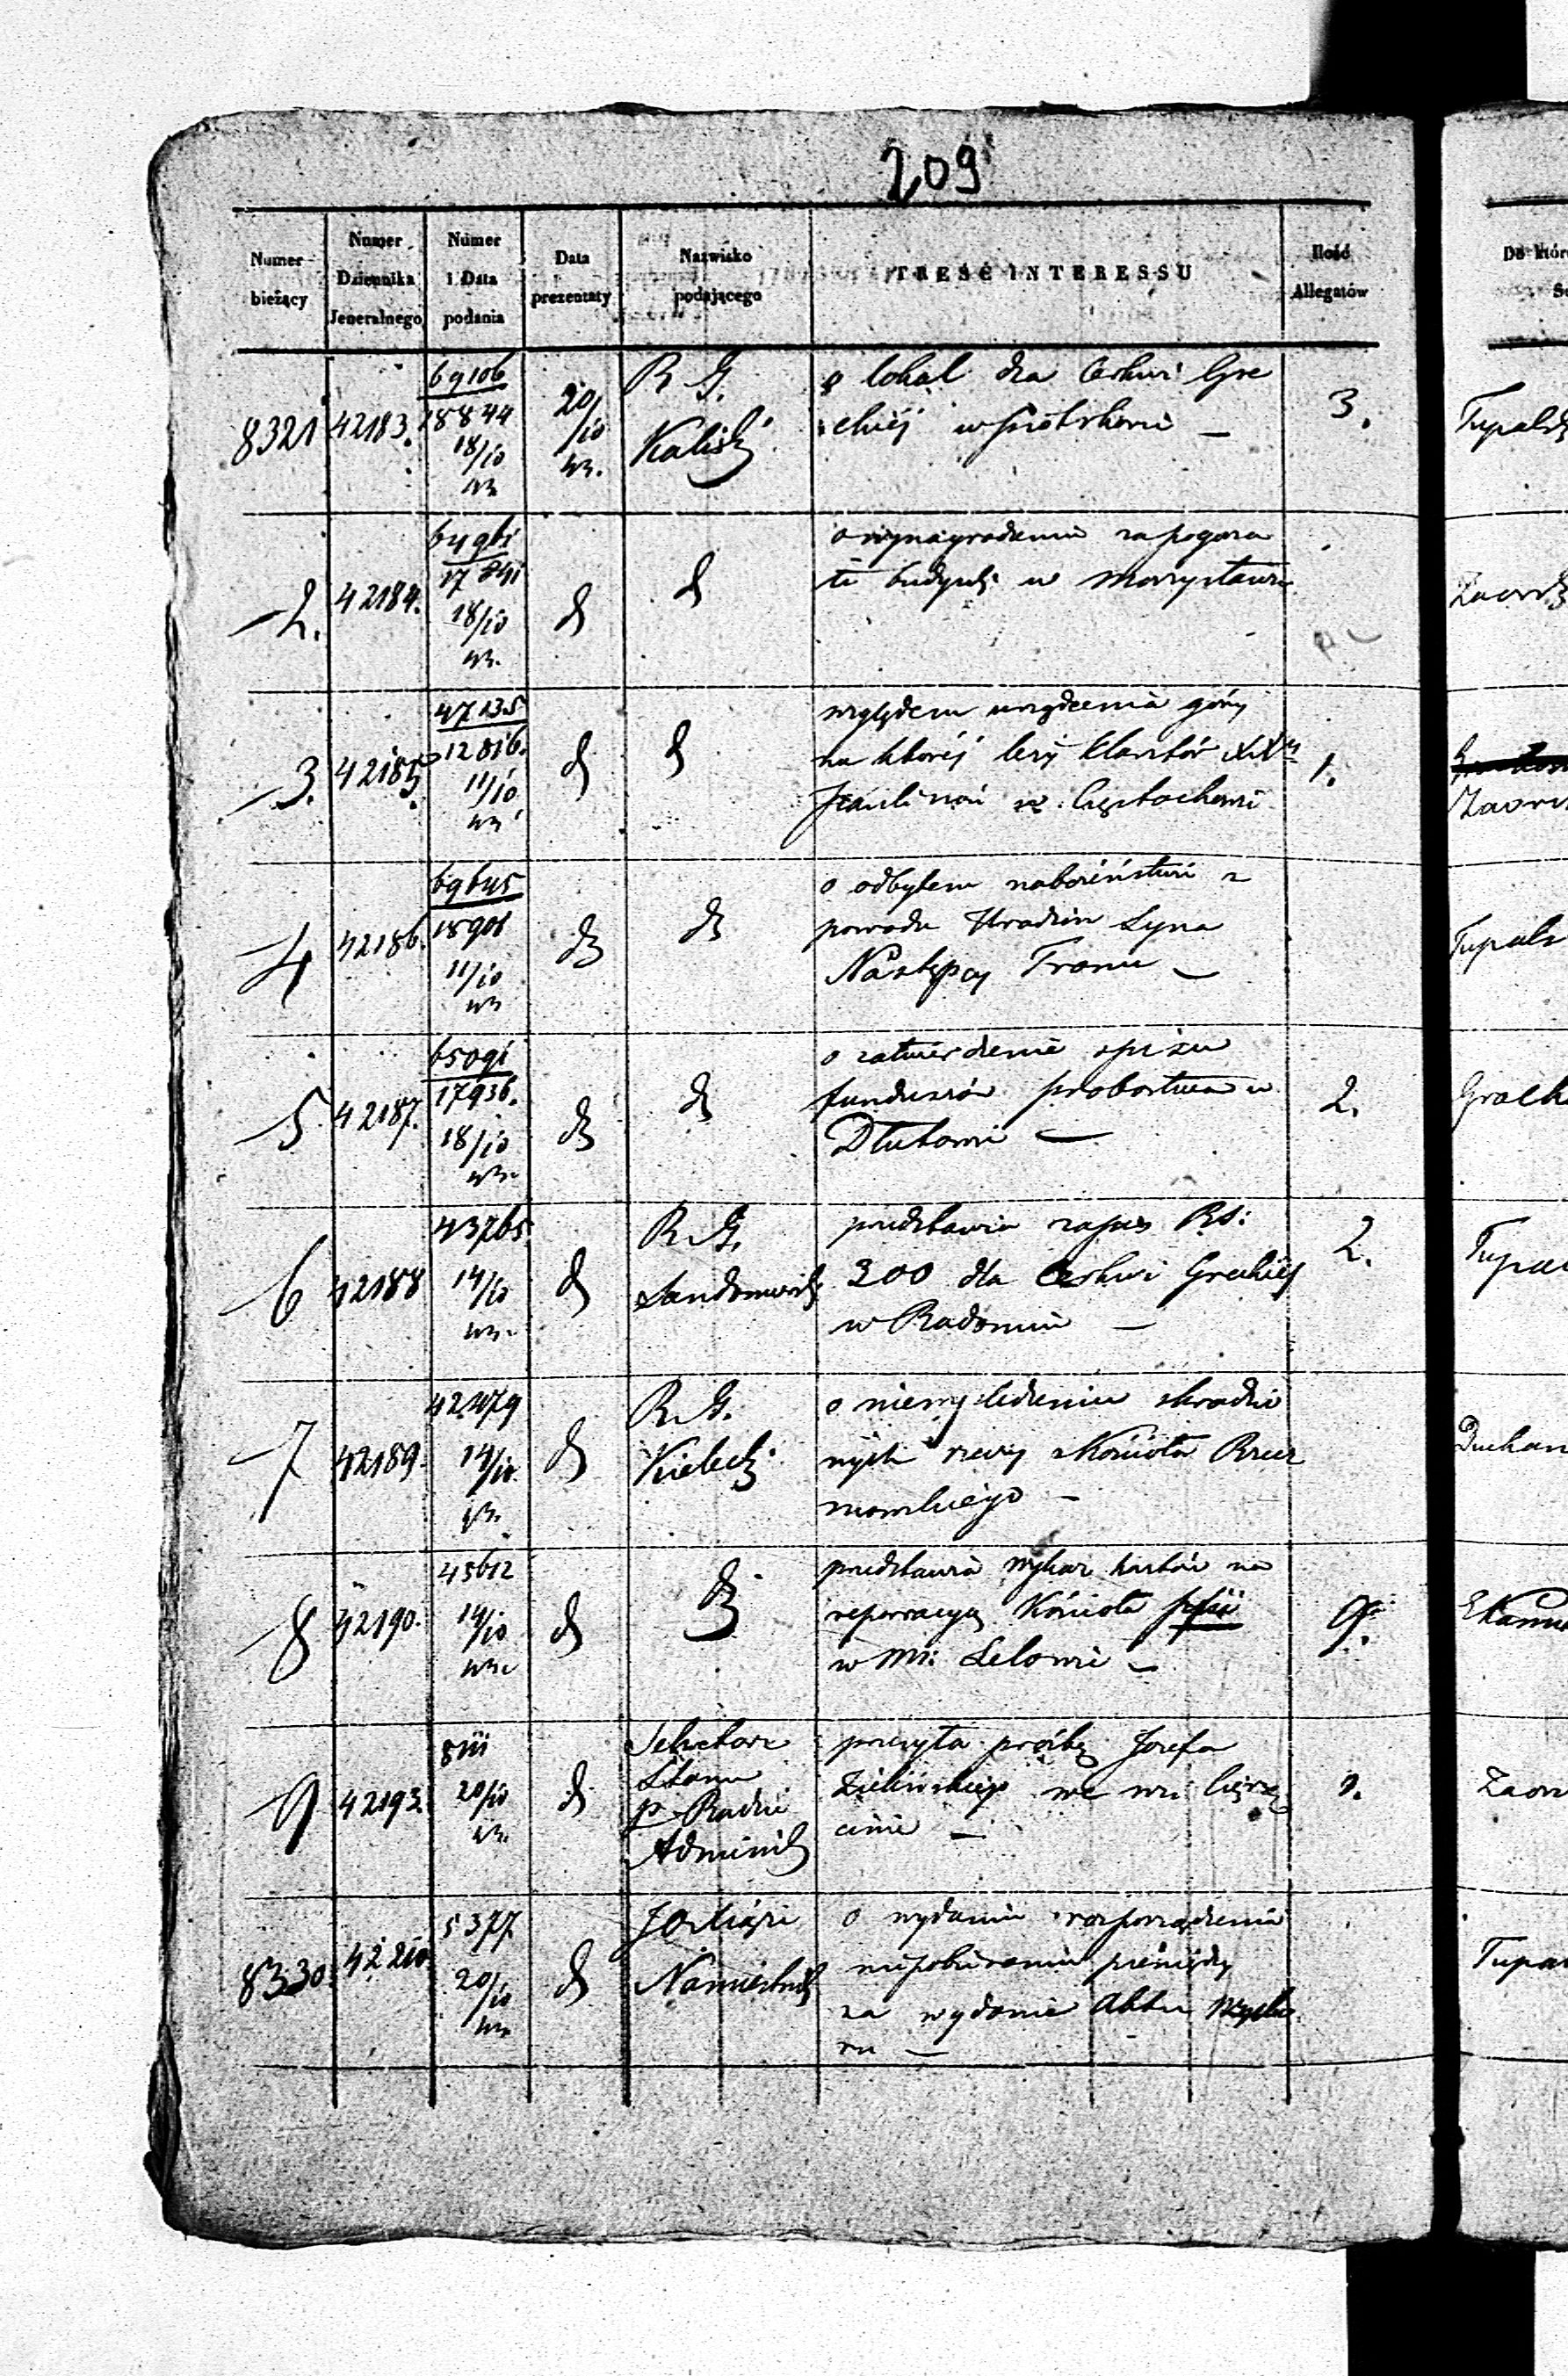 209
Numer bieżący
Numer Dziennika Jeneralnego
Numer i Data podania
Data prezentaty
Nazwisko podającego
TREŚĆ INTERESSU
Ilość Allegatów
8321 42183. 69106 18844 18/10 20/10 R. G. Kalisk o lokal dla Cerkwi Gre
ckiéj w Piotrkowie — 3.
2. 42184. 64961 17841 18/10 d d o wynagrodzenie za pogorza
łe budynki w
3. 42185 47135 12816. 11/10 d d względem urządzenia góry
na któréj leży klasztór XXży
Paulinów w Częstochowie 1.
4 42186. 69645 18901 11/10 d d o odbytem nabożeństwie z
powodu Urodzin Syna
Następcy Tronu —
5 42187. 65091 17936. 18/10 d d o zatwierdzenie spisu
funduszów probostwa w
Dłutowie — 2.
6 42188 43765. 14/10 d R. G. Sandomirsk przedstawia zapis Rs:
300 dla Cerkwi Greckiéj
w Radomiu — 2.
7 42189. 42479 14/10 d R. G. Kieleck o niewyśledzeniu skradzio
nych rzeczy z Kościoła
—
8 42190. 45612 14/10 d d przedstawia wykaz kosztów na
reparacyą Kościoła
w Mi: Lelowie — 9.
9 42193. 20/10 d Sekretarz
Stanu
p. Radzie
Administ przesyła prośbę Józefa
Zielińskiego we wsi
—
8330. 42210. 5377. 20/10 d JO Xiąże
Namiestnik o wydanie rozporządzenia
niepobierania pieniędzy
za wydanie Aktu
—